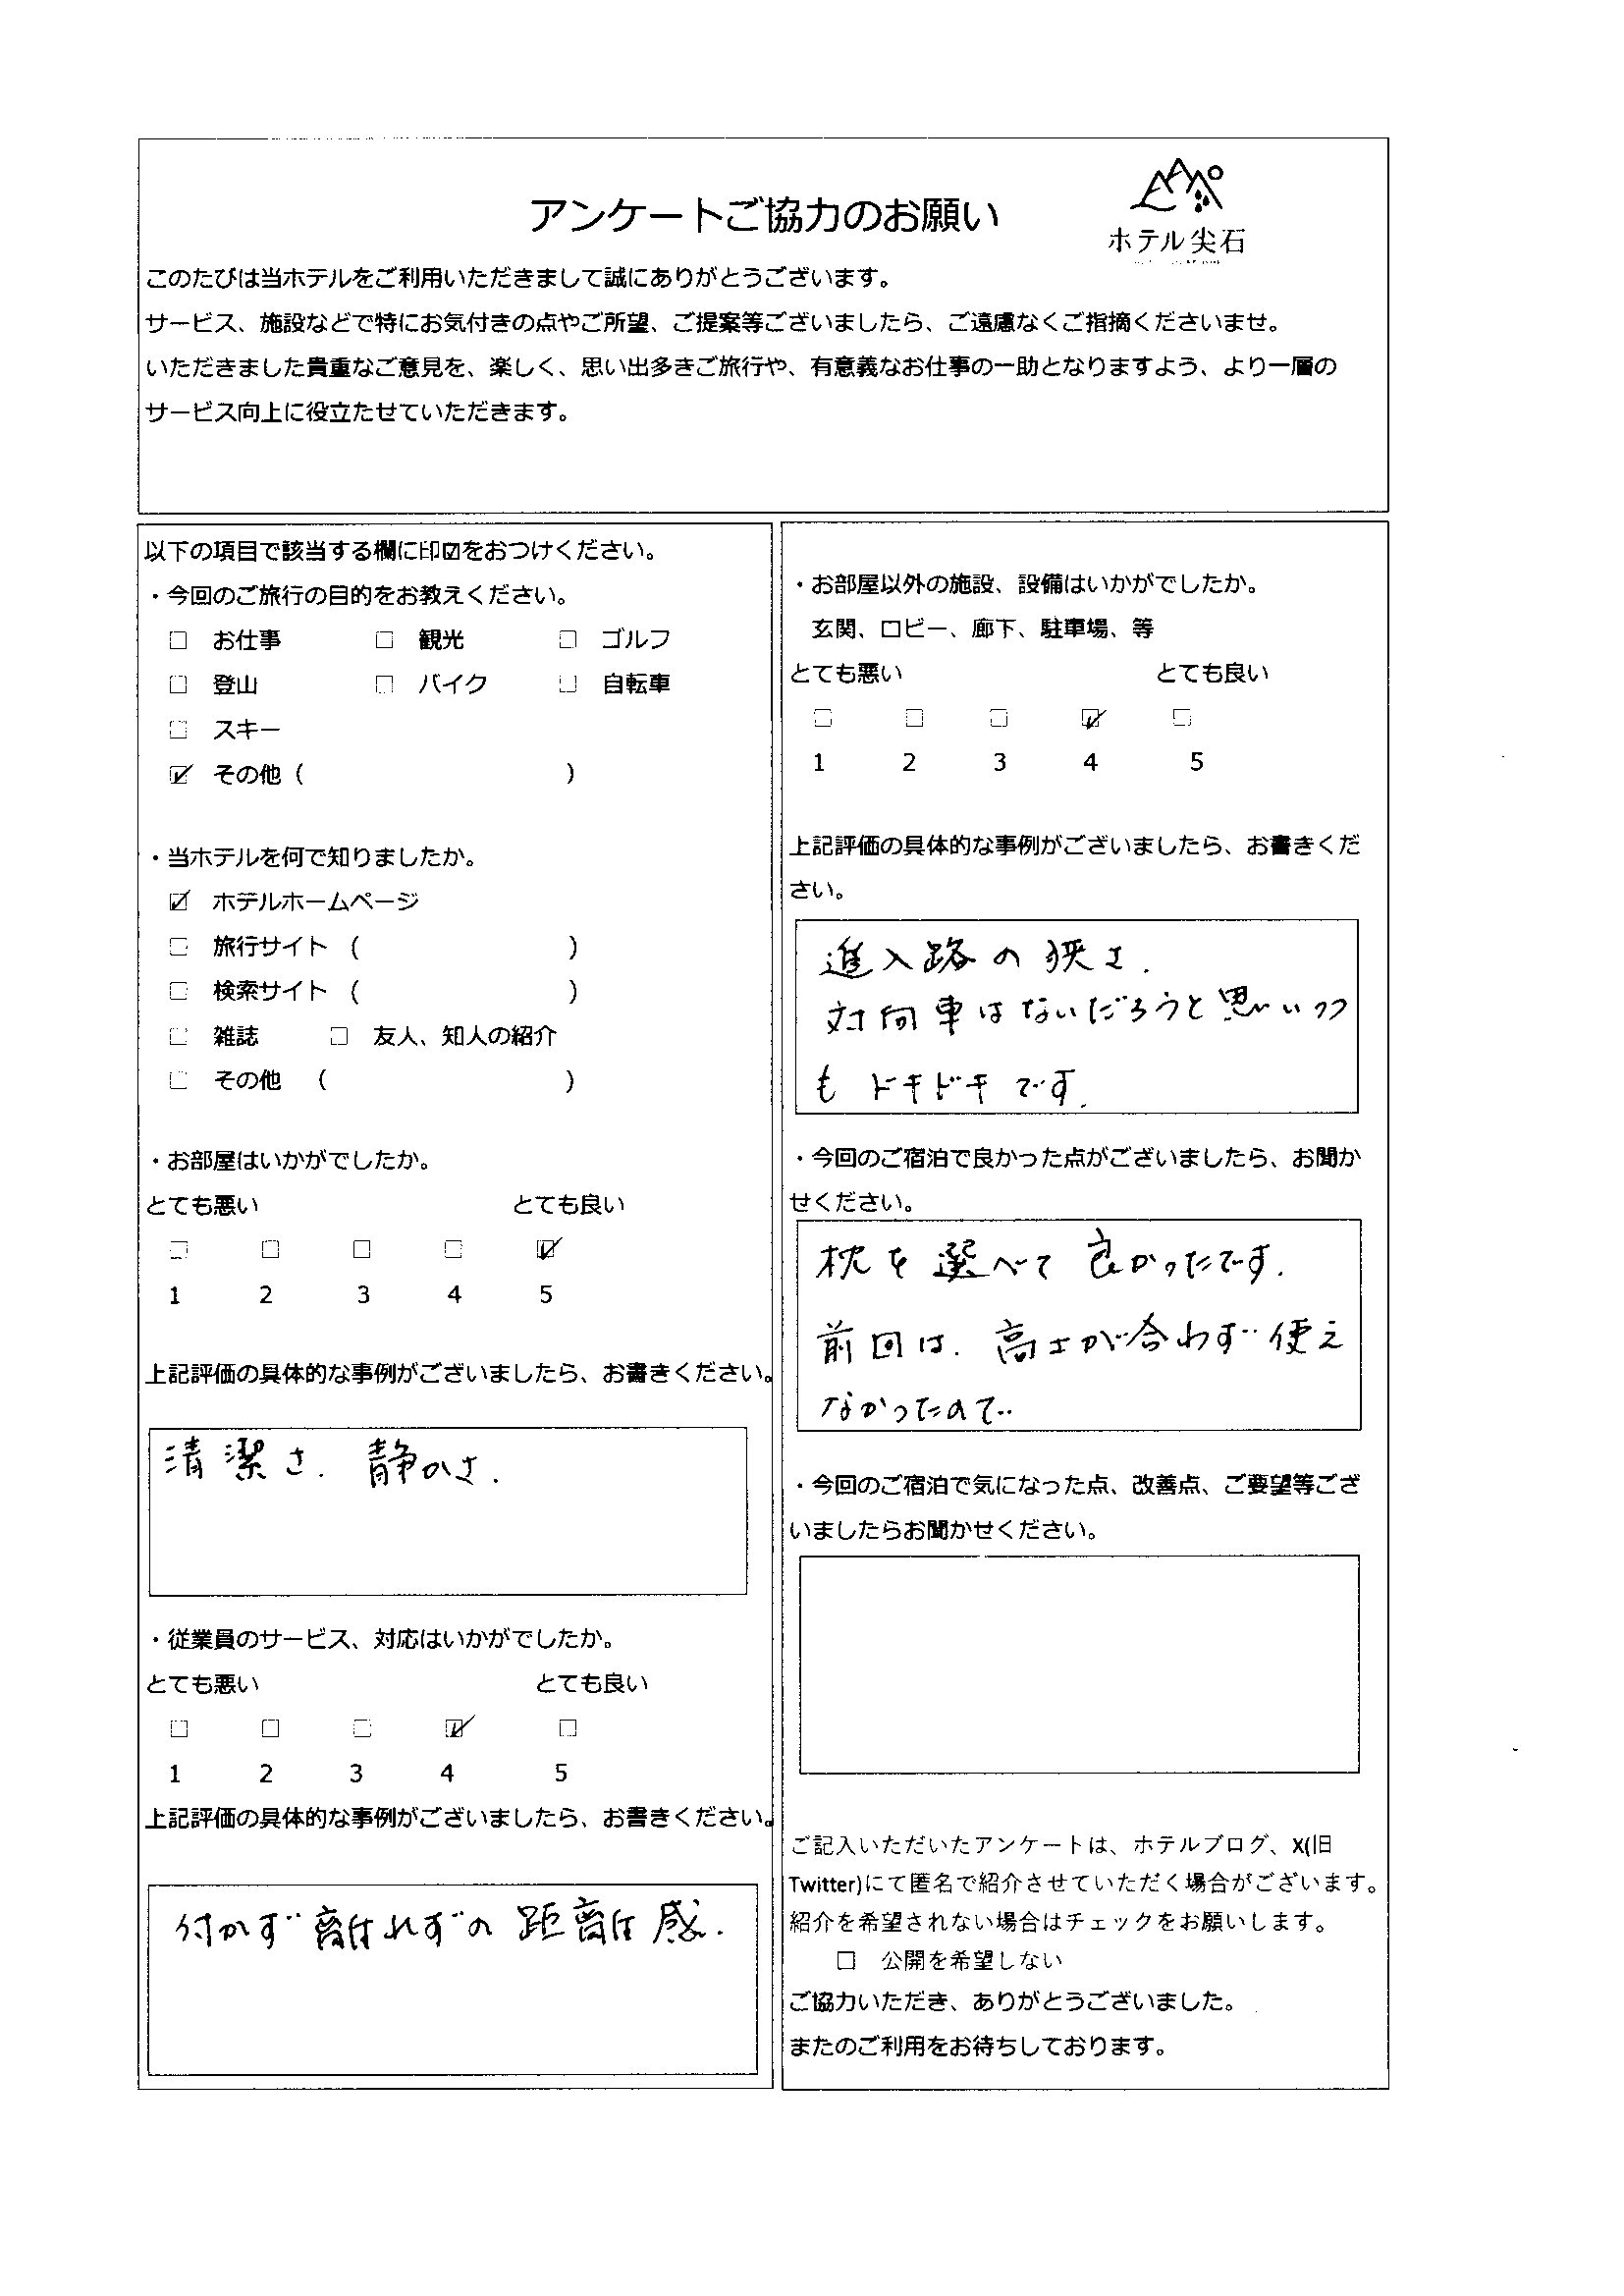 アンケートご協力のお願い
ホテル尖石
このたびは当ホテルをご利用いただきまして誠にありがとうございます。
サービス、施設などで特にお気付きの点やご所望、ご提案等ございましたら、ご遠慮なくご指摘くださいませ。
いただきました貴重なご意見を、楽しく、思い出多きご旅行や、有意義なお仕事の一助となりますよう、より一層の
サービス向上に役立たせていただきます。
以下の項目で該当する欄に印☑をおつけください。
・今回のご旅行の目的をお教えください。
□ お仕事 □ 観光 □ ゴルフ
□ 登山 □ バイク □ 自転車
□ スキー
☑ その他（ ）
・当ホテルを何で知りましたか。
☑ ホテルホームページ
□ 旅行サイト （ ）
□ 検索サイト （ ）
□ 雑誌 □ 友人、知人の紹介
□ その他 （ ）
・お部屋はいかがでしたか。
とても悪い とても良い
□ □ □ □ ☑
1 2 3 4 5
上記評価の具体的な事例がございましたら、お書きください。
清潔さ. 静かさ.
・従業員のサービス、対応はいかがでしたか。
とても悪い とても良い
□ □ □ ☑ □
1 2 3 4 5
上記評価の具体的な事例がございましたら、お書きください。
付かず離れずの距離感.
・お部屋以外の施設、設備はいかがでしたか。
玄関、ロビー、廊下、駐車場、等
とても悪い とても良い
□ □ □ ☑ □
1 2 3 4 5
上記評価の具体的な事例がございましたら、お書きくだ
さい。
進入路の狭さ.
対向車はないだろうと思いつつ
も ドキドキです.
・今回のご宿泊で良かった点がございましたら、お聞か
せください。
枕を選べて良かったです.
前回は. 高さが合わず使え
なかったので
・今回のご宿泊で気になった点、改善点、ご要望等ござ
いましたらお聞かせください。
ご記入いただいたアンケートは、ホテルブログ、X(旧
Twitter)にて匿名で紹介させていただく場合がございます。
紹介を希望されない場合はチェックをお願いします。
□ 公開を希望しない
ご協力いただき、ありがとうございました。
またのご利用をお待ちしております。